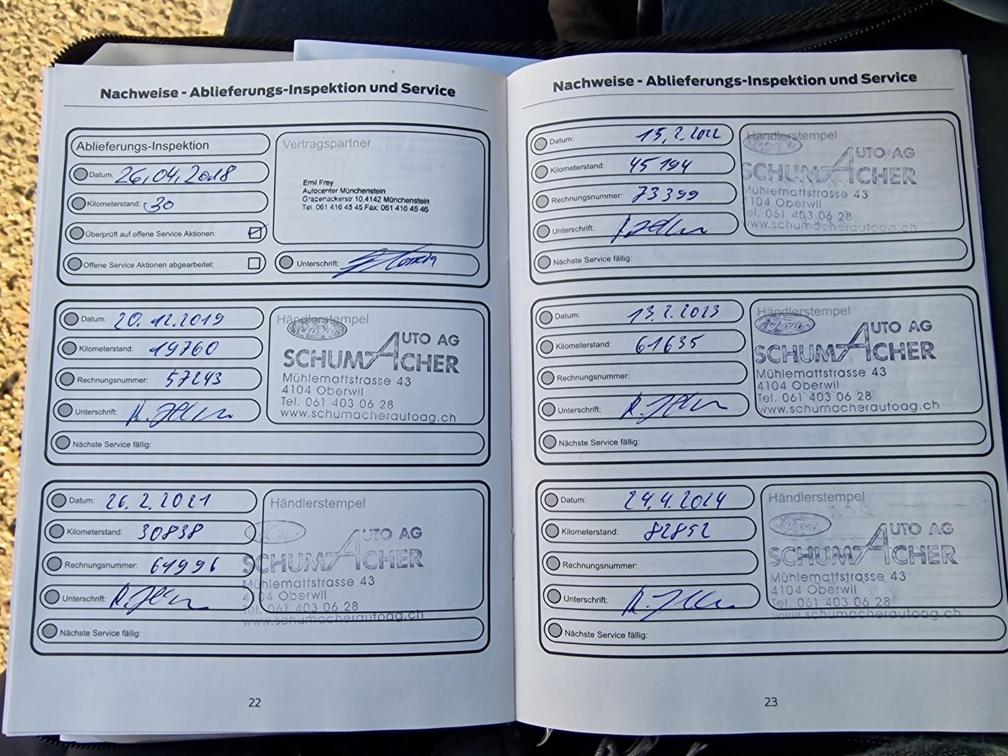 Nachweise - Ablieferungs-Inspektion und Service
Ablieferungs-Inspektion
Datum: 26.04.2018
Kilometerstand: 30
Überprüft auf offene Service Aktionen:
Offene Service Aktionen abgearbeitet:
Vertragspartner
Emil Frey
Autocenter Münchenstein
Grabenackerstr.10,4142 Münchenstein
Tel. 061 416 45 45 Fax: 061 416 45 46
Unterschrift:
Datum: 20.12.2019
Kilometerstand: 19760
Rechnungsnummer: 57243
Unterschrift:
Nächste Service fällig:
Händlerstempel
Ford
SCHUMACHER AUTO AG
Mühlemattstrasse 43
4104 Oberwil
Tel. 061 403 06 28
www.schumacherautoag.ch
Datum: 26.2.2021
Kilometerstand: 30838
Rechnungsnummer: 64996
Unterschrift:
Nächste Service fällig:
Händlerstempel
SCHUMACHER AUTO AG
Mühlemattstrasse 43
4104 Oberwil
Tel. 061 403 06 28
www.schumacherautoag.ch
22
Nachweise - Ablieferungs-Inspektion und Service
Datum: 15.2.2022
Kilometerstand: 45194
Rechnungsnummer: 73399
Unterschrift:
Nächste Service fällig:
Händlerstempel
SCHUMACHER AUTO AG
Mühlemattstrasse 43
4104 Oberwil
Tel. 061 403 06 28
www.schumacherautoag.ch
Datum: 13.2.2023
Kilometerstand: 61635
Rechnungsnummer:
Unterschrift:
Nächste Service fällig:
Händlerstempel
Ford
SCHUMACHER AUTO AG
Mühlemattstrasse 43
4104 Oberwil
Tel. 061 403 06 28
www.schumacherautoag.ch
Datum: 24.4.2024
Kilometerstand: 82852
Rechnungsnummer:
Unterschrift:
Nächste Service fällig:
Händlerstempel
SCHUMACHER AUTO AG
Mühlemattstrasse 43
4104 Oberwil
Tel. 061 403 06 28
www.schumacherautoag.ch
23